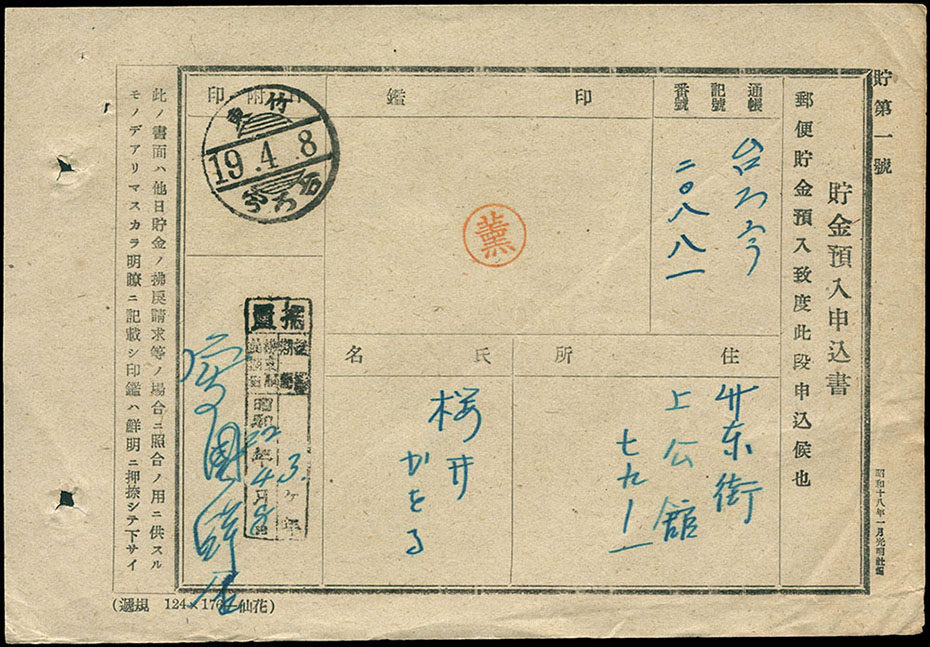 貯第一號
貯金預入申込書
郵便貯金預入致度此段申込候也
昭和十八年一月光明社納
通帳
記號
番號
台ろう
二〇八八一
印鑑
薫
住所
竹東街
上公館
七九ノ一
氏名
桜井
かをる
附印
竹東
19.4.8
台
据置
昭和22年4月8
3ヶ年
此ノ書面ハ他日貯金ノ拂戾請求等ノ場合ニ照合ノ用ニ供スル
モノデアリマスカラ明瞭ニ記載シ印鑑ハ鮮明ニ押捺シテ下サイ
(規格 124×176 仙花)